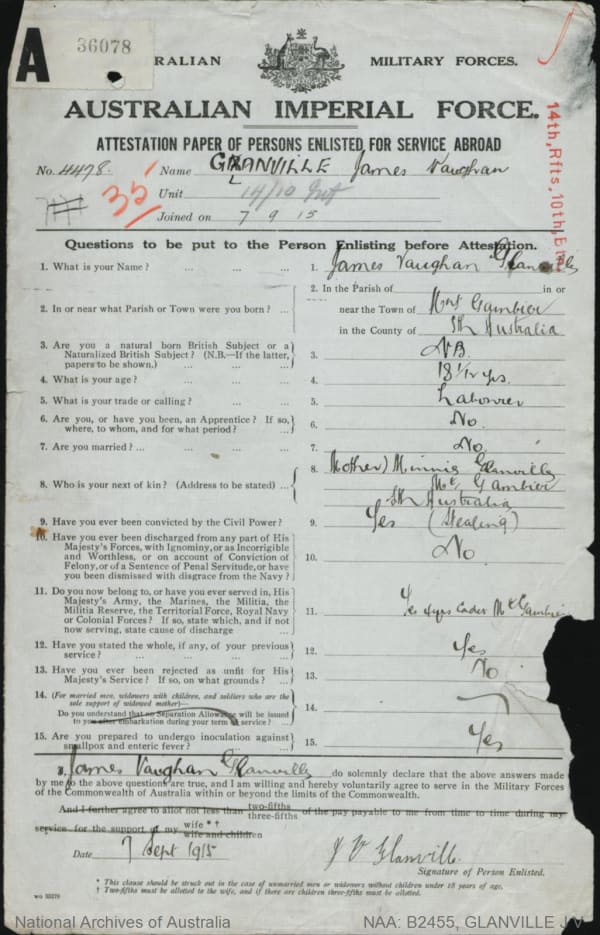 A
36078
RALIAN MILITARY FORCES.
AUSTRALIAN IMPERIAL FORCE.
ATTESTATION PAPER OF PERSONS ENLISTED FOR SERVICE ABROAD
14th, Rfts, 10th,
No. 4478. Name GLANVILLE James Vaughan
35
Unit 14/10 Inf
Joined on 7 9 15
Questions to be put to the Person Enlisting before Attestation.
1. What is your Name? ... ... ... 1. James Vaughan Glanville
2. In or near what Parish or Town were you born? ... 2. In the Parish of in or
near the Town of Mnt Gambier
in the County of Sth Australia
3. Are you a natural born British Subject or a
Naturalized British Subject? (N.B.—If the latter,
papers to be shown.) ... ... ... 3. NB.
4. What is your age? ... ... ... 4. 18 1/12 yrs.
5. What is your trade or calling? ... ... ... 5. Labourer
6. Are you, or have you been, an Apprentice? If so,
where, to whom, and for what period? ... ... 6. No.
7. Are you married? ... ... ... ... 7. No
8. Who is your next of kin? (Address to be stated) ... 8. Mother) Minnie Glanville
Mt Gambier
Sth Australia
9. Have you ever been convicted by the Civil Power? 9. Yes (Stealing)
10. Have you ever been discharged from any part of His
Majesty's Forces, with Ignominy, or as Incorrigible
and Worthless, or on account of Conviction of
Felony, or of a Sentence of Penal Servitude, or have
you been dismissed with disgrace from the Navy? 10. No
11. Do you now belong to, or have you ever served in, His
Majesty's Army, the Marines, the Militia, the
Militia Reserve, the Territorial Force, Royal Navy
or Colonial Forces? If so, state which, and if not
now serving, state cause of discharge ... 11. Yes 4yrs Cadet Mt Gambier
12. Have you stated the whole, if any, of your previous
service? ... ... ... ... 12. Yes
13. Have you ever been rejected as unfit for His
Majesty's Service? If so, on what grounds? ... 13. No
14. (For married men, widowers with children, and soldiers who are the
sole support of widowed mother)—
Do you understand that no Separation Allowance will be issued
to you after embarkation during your term of service? ... 14.
15. Are you prepared to undergo inoculation against
smallpox and enteric fever? ... ... 15. Yes
I, James Vaughan Glanville do solemnly declare that the above answers made
by me to the above questions are true, and I am willing and hereby voluntarily agree to serve in the Military Forces
of the Commonwealth of Australia within or beyond the limits of the Commonwealth.
And I further agree to allot not less than two-fifths three-fifths of the pay payable to me from time to time during my
service for the support of my wife * † wife and children
Date 7 Sept 1915 J V Glanville.
Signature of Person Enlisted.
* This clause should be struck out in the case of unmarried men or widowers without children under 18 years of age.
† Two-fifths must be allotted to the wife, and if there are children three-fifths must be allotted.
National Archives of Australia NAA: B2455, GLANVILLE J V